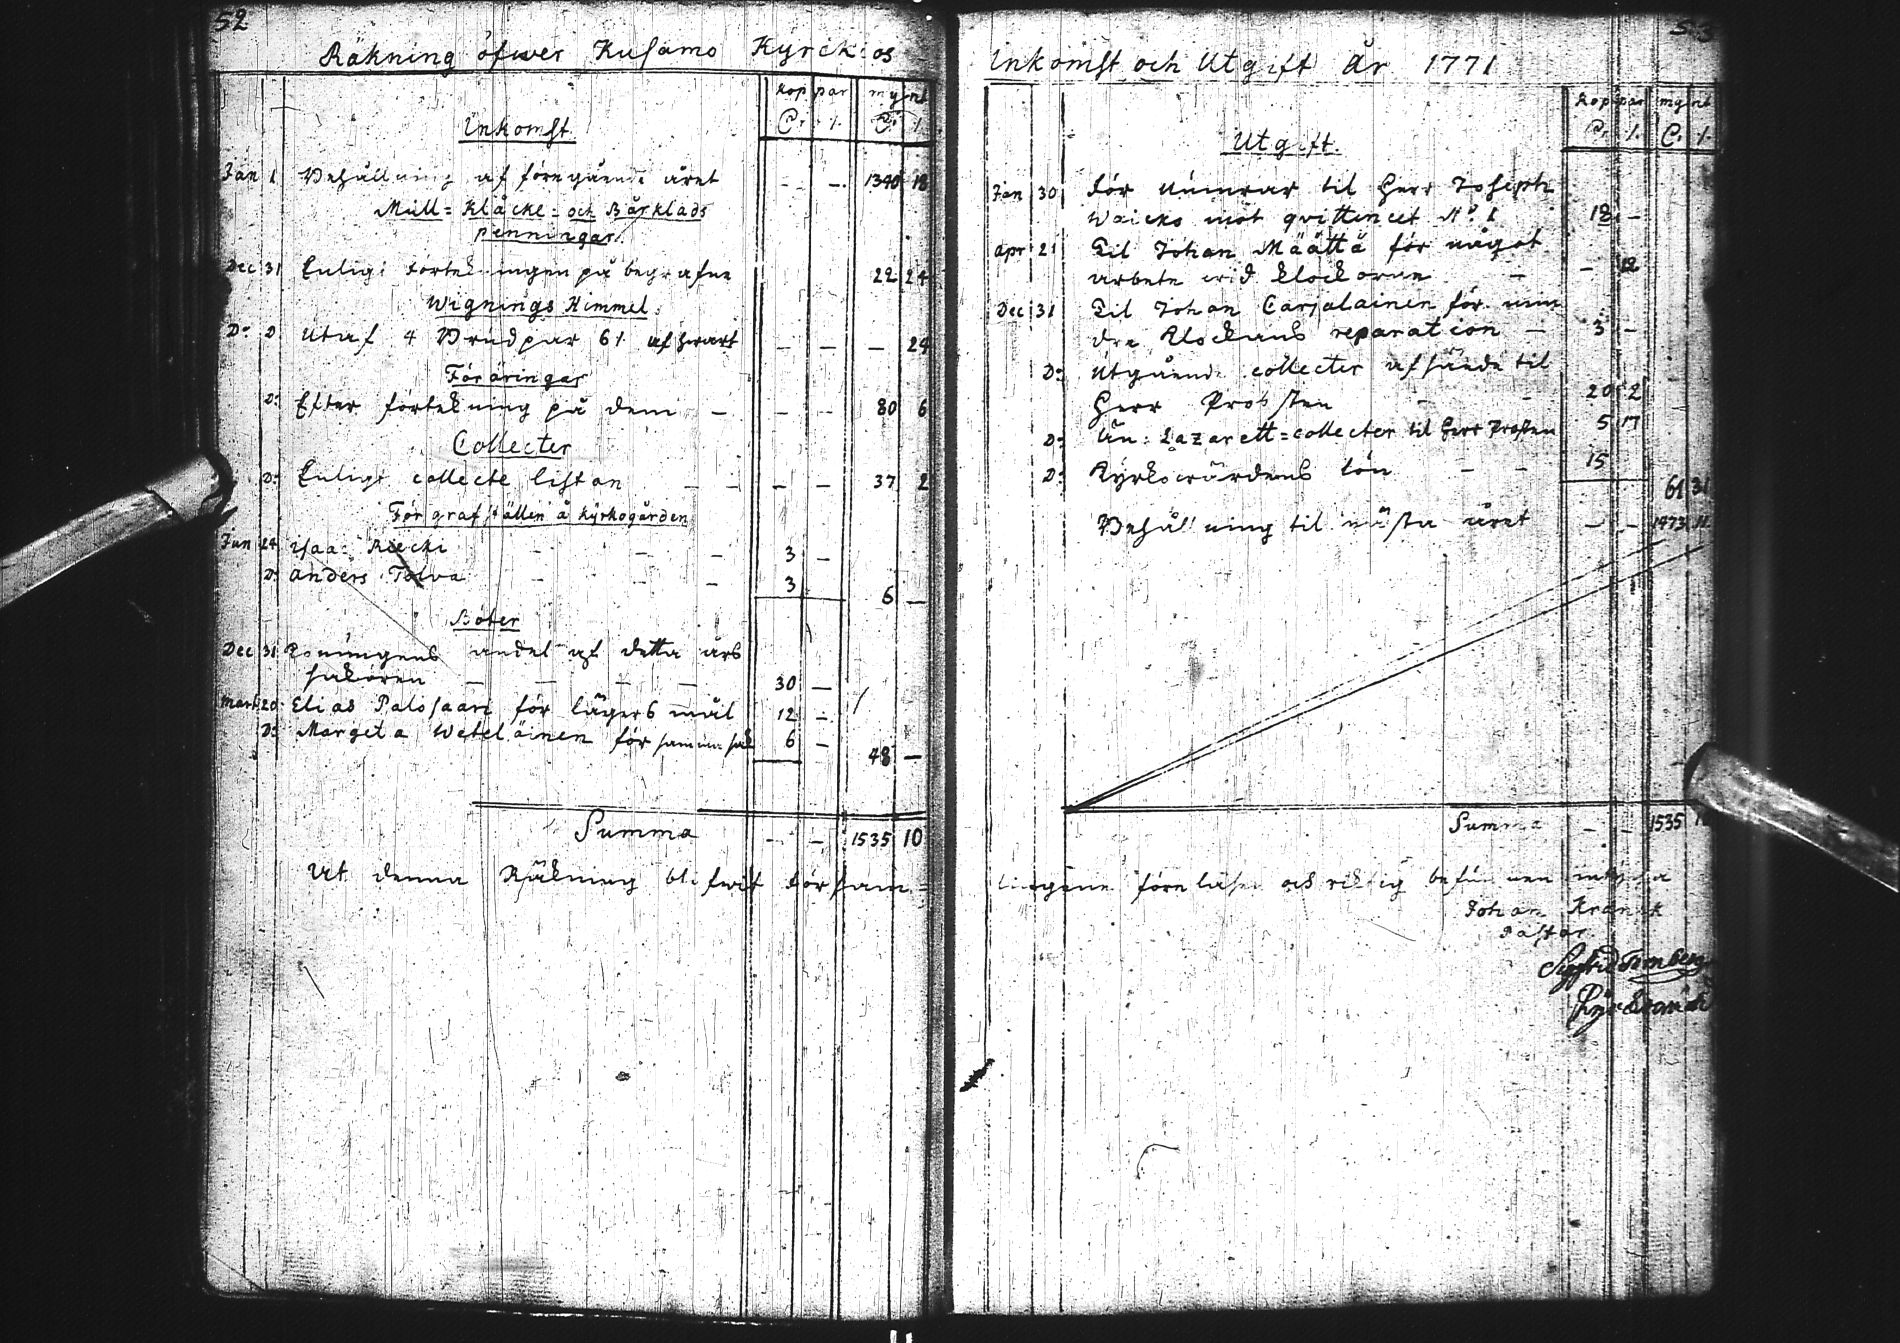 52
Räkning öfwer Kusamo Kyrckios
koppar mynt
Inkomst
Cr. 1. Cr. 1.
Jan 1 Behållning af föregående året - - 1340 18
Mull= Klåcke= och Bårklads
penningar.
Dec 31 Enligt förtekningen på begrafne 22 24
Wignings Himmel.
Do D Utaf 4 Brudpar 6 1 af hwart - - - 24
Föräringar
D: Efter förtekning på dem - - - 80 6
Collecter
D: Enligt collecte listan - - - - 37 2
För grafställen å kyrkogården
Jun 24 Isaac Riecki - - - 3 -
D: Anders Tolva - - - 3
6 -
Böter
Dec 31 Konungens andel af detta års
sakören - - - - 30 -
Mart 20 Elias Palosaari för lägers mål 12 -
D: Margeta Weteläinen för samma sak 6 -
48 -
Summa - - 1535 10
At denna Räkning blifwit försam=
53
Inkomst och Utgift År 1771
koppar mynt
Cr. 1. Cr. 1.
Utgift.
Jan 30 För numrar til Herr Joseph
Waicko mot qvittencet No. 1 18 -
Apr 21 Til Johan Määttä för något
arbete wid klockorne - - 12
Dec 31 Til Johan Carjalainen för min
dre Klockans reparation - 3 -
D: Utgående collecter afsände til
Herr Probsten - - 20 2
D: Än: Lazarett=collecter til Herr Prosten 5 17
D: Kyrkowärdens lön - - 15
61 31
Behållning til nästa året - - 1473 11
Summa - - 1535 10
lingene föreläsen och riktig befunnen intyga
Johan Kranck
Pastor.
Sigfrid Tornberg